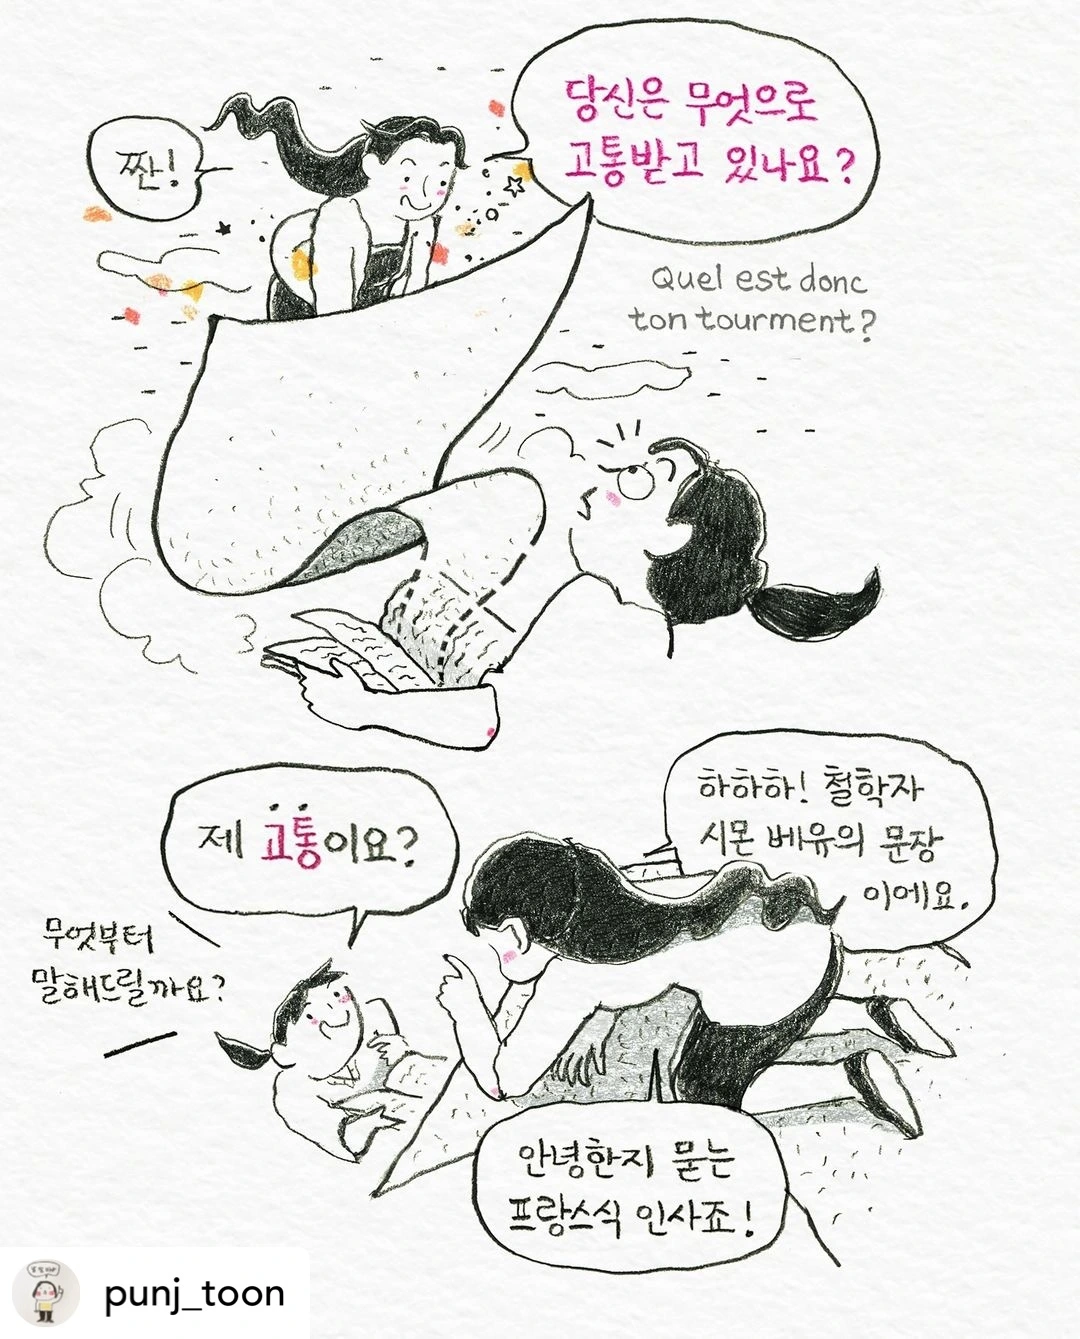 짠!
당신은 무엇으로
고통받고 있나요?
Quel est donc
ton tourment?
제 고통이요?
하하하! 철학자
시몬 베유의 문장
이에요.
무엇부터
말해드릴까요?
안녕한지 묻는
프랑스식 인사죠!
punj_toon